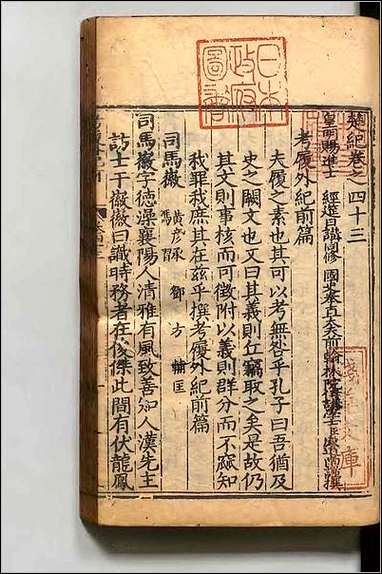 楚紀卷之四十三
皇明賜進士 經筵日講同修 國史奉直大夫前翰林院侍講學士 撰
考履外紀前篇
夫履之素也其可以考無咎乎孔子曰吾猶及
史之闕文也又曰其義則丘竊取之矣是故仍
其文則事核而可徵附以義則群分而不踰知
我罪我庶其在兹乎撰考履外紀前篇
司馬徽 黃彦承 鄒方 輔匡
馮
司馬徽字德澡襄陽人清雅有風致善知人漢先主
訪士于徽徽曰識時務者在俊傑此間有伏龍鳳
日本
政府
圖書
文庫